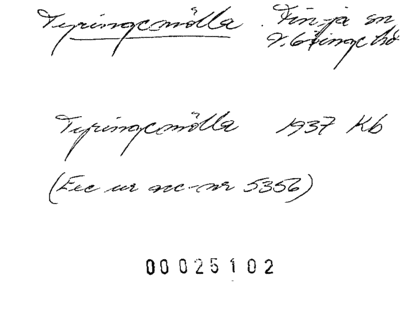 Tyringemölla Finja sn
V. Göinge hd
Tyringemölla 1937 Kb
(Ecc ur acc-nr 5356)
00025102